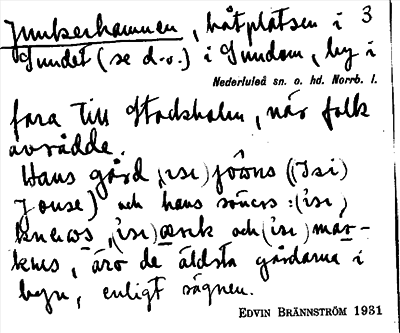 Junkerhamnen, båtplatsen i 3
Sundet (se d.o.) i Sundom, by i
Nederluleå sn. o. hd. Norrb. l.
fara till Stockholm, när folk
avrådde.
Hans gård (ɪsɪ)
Jouse) och hans söners: (ɪsɪ)
(ɪsɪ) och (ɪsɪ) mar-
knes, äro de äldsta gårdarna i
byn, enligt sägnen.
EDVIN BRÄNNSTRÖM 1931